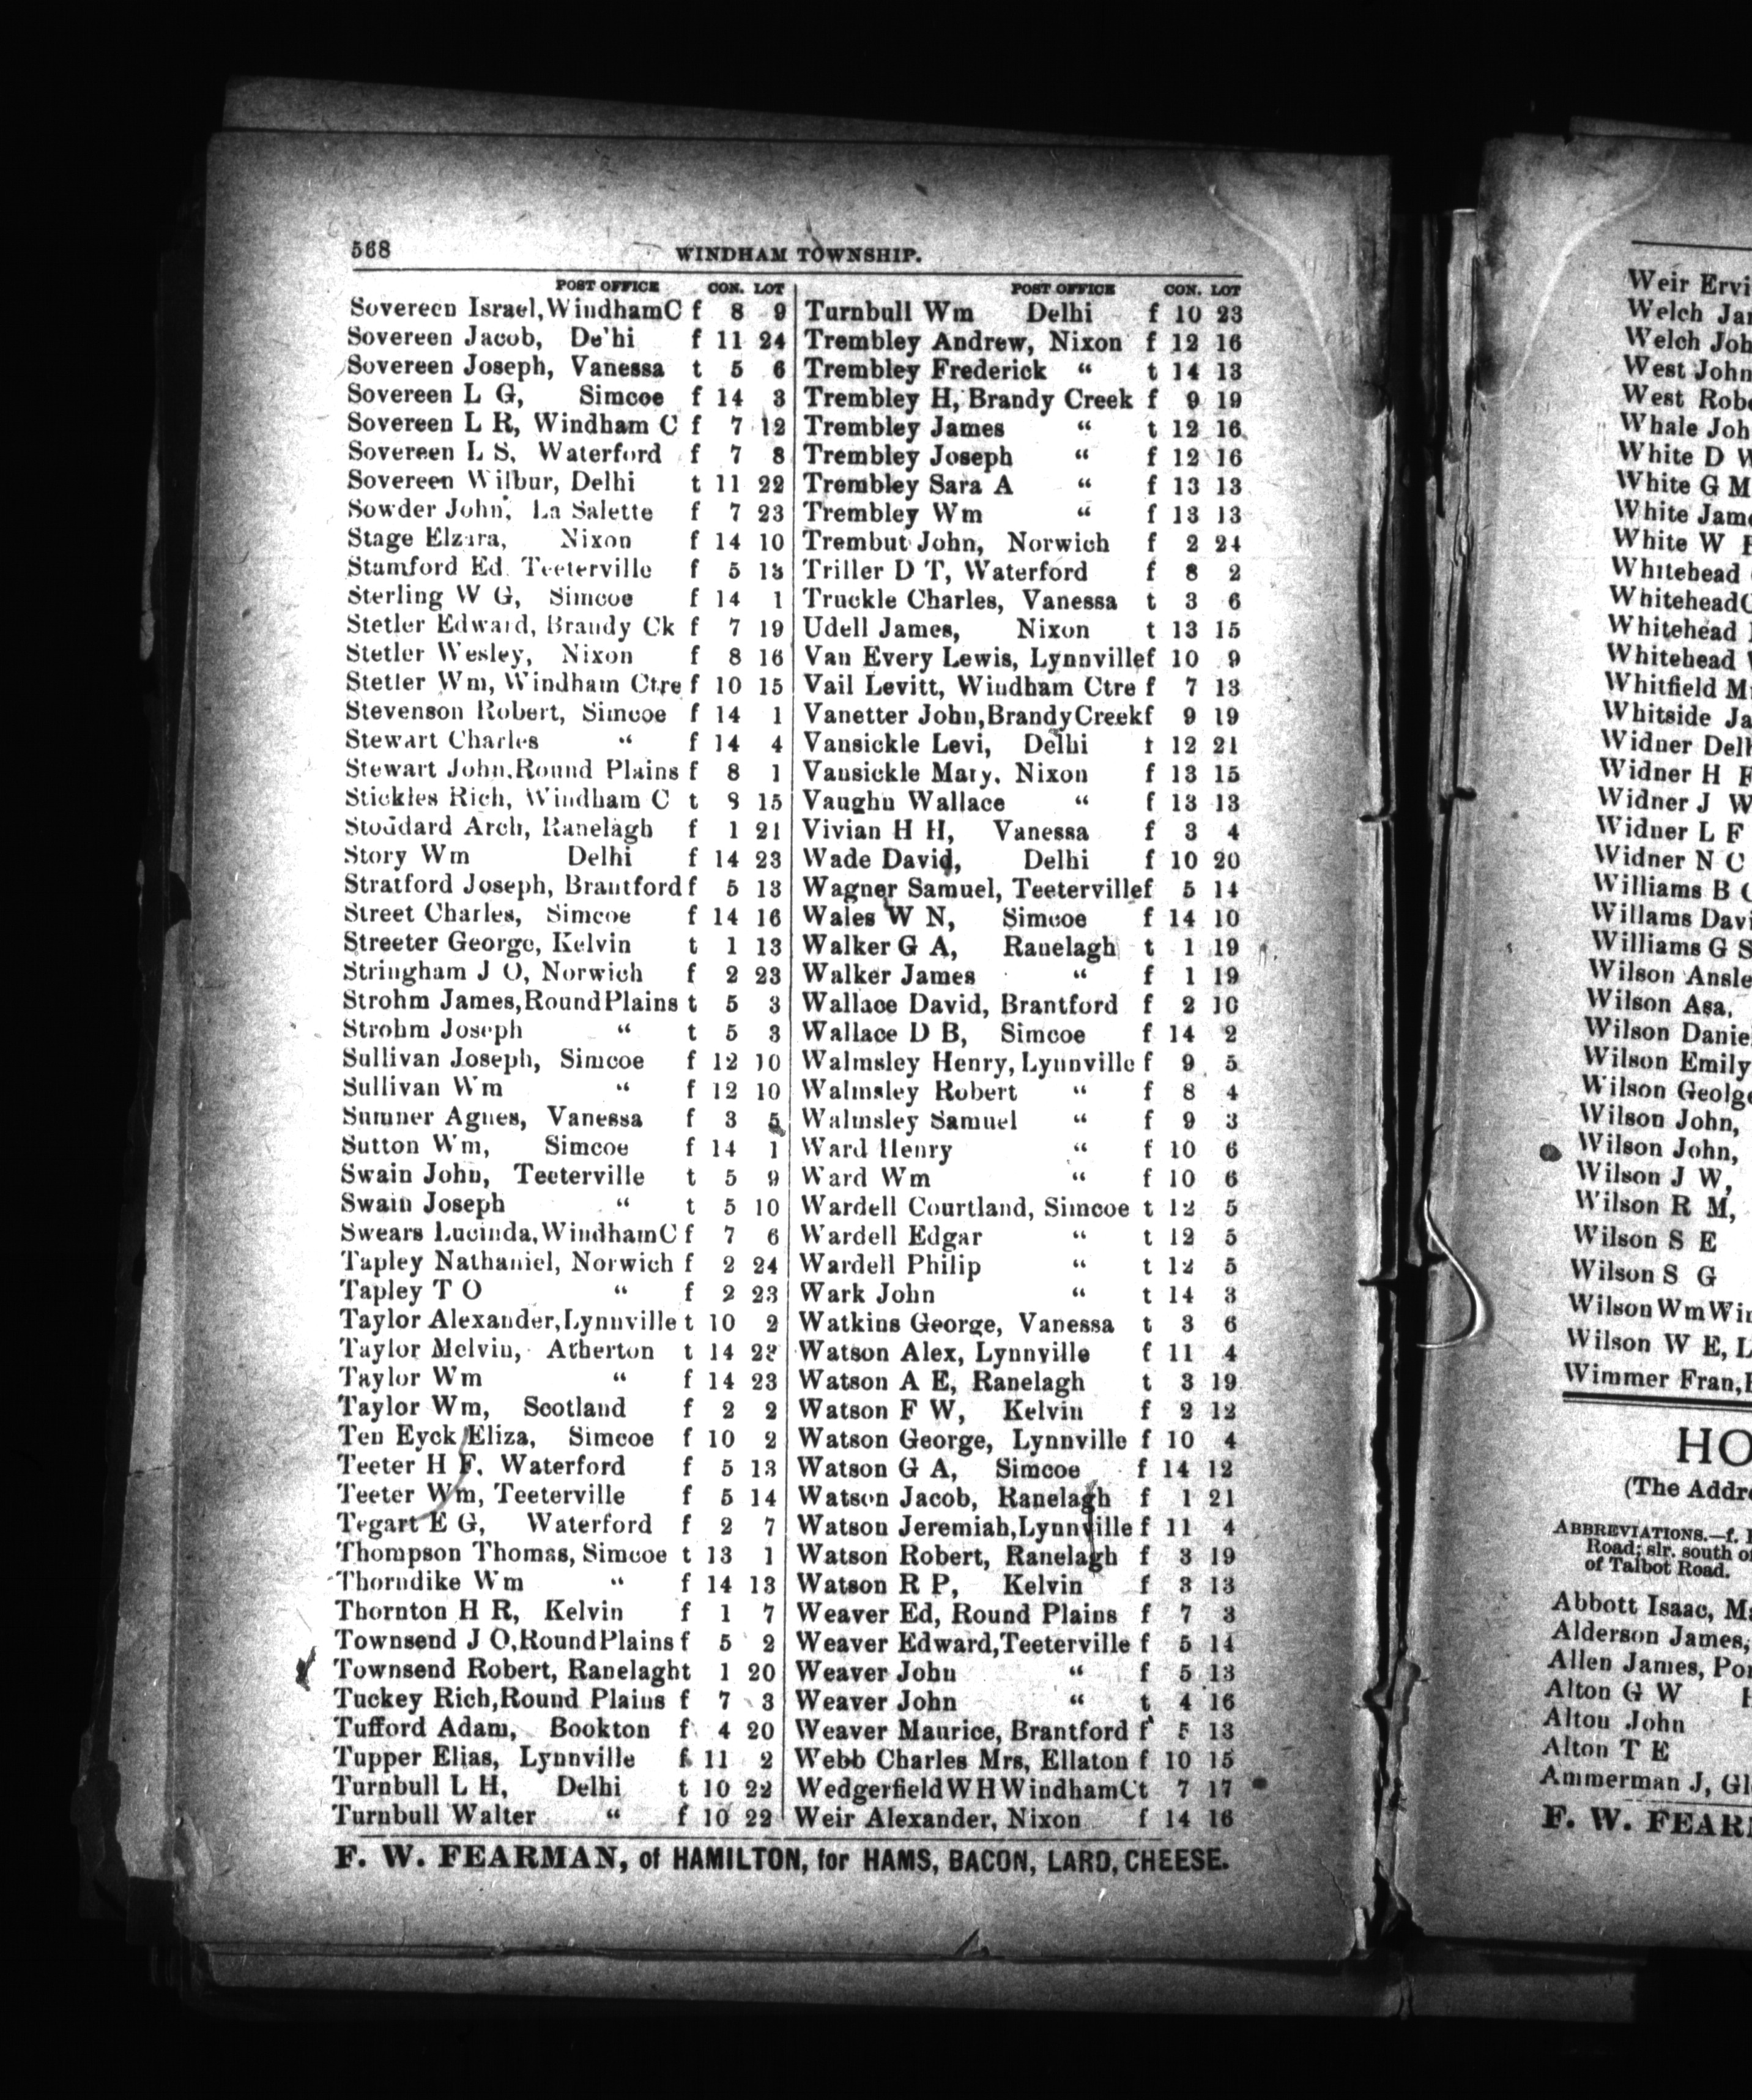 568 WINDHAM TOWNSHIP.
POST OFFICE CON. LOT
Sovereen Israel,WindhamC f 8 9
Sovereen Jacob, De'hi f 11 24
Sovereen Joseph, Vanessa t 5 6
Sovereen L G, Simcoe f 14 3
Sovereen L R, Windham C f 7 12
Sovereen L S, Waterford f 7 8
Sovereen Wilbur, Delhi t 11 22
Sowder John, La Salette f 7 23
Stage Elzara, Nixon f 14 10
Stamford Ed. Teeterville f 5 13
Sterling W G, Simcoe f 14 1
Stetler Edward, Brandy Ck f 7 19
Stetler Wesley, Nixon f 8 16
Stetler Wm, Windham Ctre f 10 15
Stevenson Robert, Simcoe f 14 1
Stewart Charles “ f 14 4
Stewart John,Round Plains f 8 1
Stickles Rich, Windham C t 8 15
Stoddard Arch, Ranelagh f 1 21
Story Wm Delhi f 14 23
Stratford Joseph, Brantford f 5 13
Street Charles, Simcoe f 14 16
Streeter George, Kelvin t 1 13
Stringham J O, Norwich f 2 23
Strohm James,RoundPlains t 5 3
Strohm Joseph “ t 5 3
Sullivan Joseph, Simcoe f 12 10
Sullivan Wm “ f 12 10
Sumner Agnes, Vanessa f 3 5
Sutton Wm, Simcoe f 14 1
Swain John, Teeterville t 5 9
Swain Joseph “ t 5 10
Swears Lucinda,WindhamC f 7 6
Tapley Nathaniel, Norwich f 2 24
Tapley T O “ f 2 23
Taylor Alexander,Lynnville t 10 2
Taylor Melvin, Atherton t 14 23
Taylor Wm “ f 14 23
Taylor Wm, Scotland f 2 2
Ten Eyck Eliza, Simcoe f 10 2
Teeter H F, Waterford f 5 13
Teeter Wm, Teeterville f 5 14
Tegart E G, Waterford f 2 7
Thompson Thomas, Simcoe t 13 1
Thorndike Wm “ f 14 13
Thornton H R, Kelvin f 1 7
Townsend J O,RoundPlains f 5 2
Townsend Robert, Ranelaght 1 20
Tuckey Rich,Round Plains f 7 3
Tufford Adam, Bookton f 4 20
Tupper Elias, Lynnville f 11 2
Turnbull L H, Delhi t 10 22
Turnbull Walter “ f 10 22
POST OFFICE CON. LOT
Turnbull Wm Delhi f 10 23
Trembley Andrew, Nixon f 12 16
Trembley Frederick “ t 14 13
Trembley H, Brandy Creek f 9 19
Trembley James “ t 12 16
Trembley Joseph “ f 12 16
Trembley Sara A “ f 13 13
Trembley Wm “ f 13 13
Trembut John, Norwich f 2 24
Triller D T, Waterford f 8 2
Truckle Charles, Vanessa t 3 6
Udell James, Nixon t 13 15
Van Every Lewis, Lynnvillef 10 9
Vail Levitt, Windham Ctre f 7 13
Vanetter John,BrandyCreekf 9 19
Vansickle Levi, Delhi t 12 21
Vansickle Mary, Nixon f 13 15
Vaughn Wallace “ f 13 13
Vivian H H, Vanessa f 3 4
Wade David, Delhi f 10 20
Wagner Samuel, Teetervillef 5 14
Wales W N, Simcoe f 14 10
Walker G A, Ranelagh t 1 19
Walker James “ f 1 19
Wallace David, Brantford f 2 10
Wallace D B, Simcoe f 14 2
Walmsley Henry, Lynnville f 9 5
Walmsley Robert “ f 8 4
Walmsley Samuel “ f 9 3
Ward Henry “ f 10 6
Ward Wm “ f 10 6
Wardell Courtland, Simcoe t 12 5
Wardell Edgar “ t 12 5
Wardell Philip “ t 12 5
Wark John “ t 14 3
Watkins George, Vanessa t 3 6
Watson Alex, Lynnville f 11 4
Watson A E, Ranelagh t 3 19
Watson F W, Kelvin f 2 12
Watson George, Lynnville f 10 4
Watson G A, Simcoe f 14 12
Watson Jacob, Ranelagh f 1 21
Watson Jeremiah,Lynnville f 11 4
Watson Robert, Ranelagh f 3 19
Watson R P, Kelvin f 3 13
Weaver Ed, Round Plains f 7 3
Weaver Edward,Teeterville f 5 14
Weaver John “ f 5 13
Weaver John “ t 4 16
Weaver Maurice, Brantford f 5 13
Webb Charles Mrs, Ellaton f 10 15
WedgerfieldWHWindhamCt 7 17
Weir Alexander, Nixon f 14 16
F. W. FEARMAN, of HAMILTON, for HAMS, BACON, LARD, CHEESE.
Weir Ervi
Welch Ja
Welch Joh
West John
West Rob
Whale Joh
White D W
White G M
White Jam
White W
Whitehead
Whitehead
Whitehead
Whitehead
Whitfield M
Whitside Ja
Widner Delh
Widner H F
Widner J W
Widner L F
Widner N C
Williams B
Willams Davi
Williams G S
Wilson Ansle
Wilson Asa,
Wilson Danie
Wilson Emily
Wilson Geolge
Wilson John,
Wilson John,
Wilson J W,
Wilson R M,
Wilson S E
Wilson S G
Wilson Wm Win
Wilson W E, L
Wimmer Fran,
HO
(The Addre
ABBREVIATIONS.—f.
Road; slr. south of
of Talbot Road.
Abbott Isaac, M
Alderson James,
Allen James, Por
Alton G W
Altou John
Alton T E
Ammerman J, Gl
F. W. FEAR